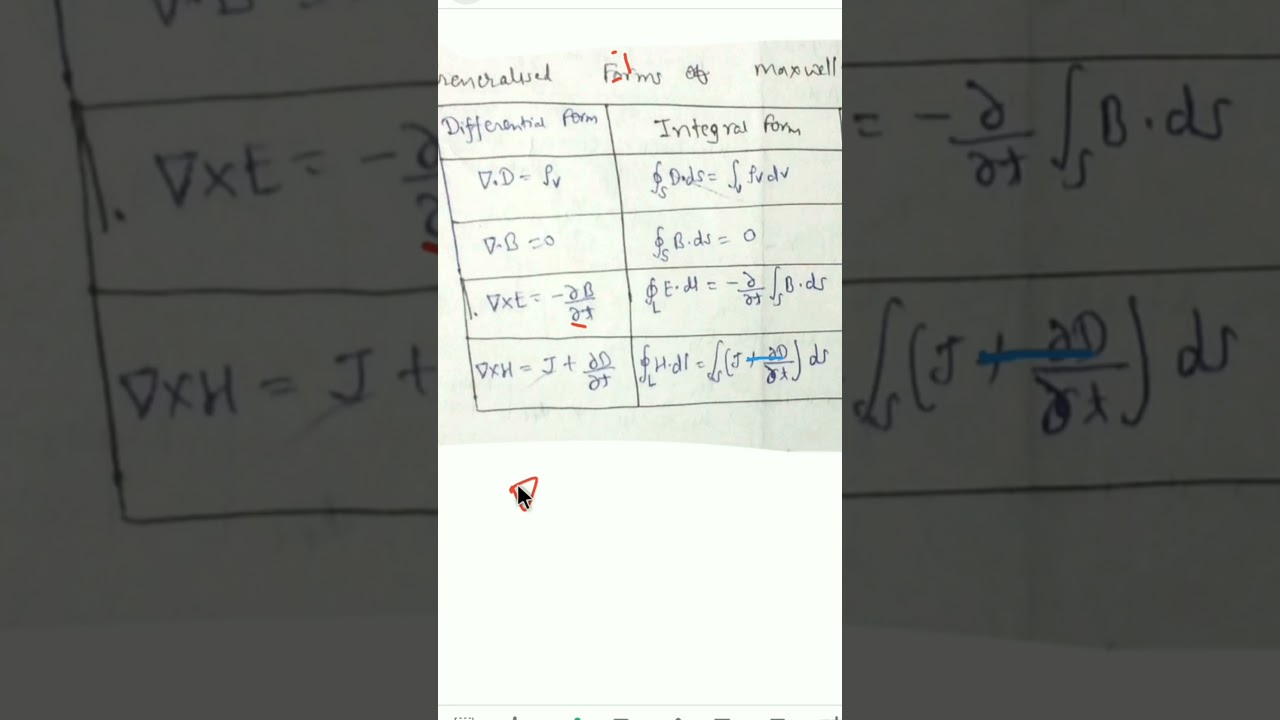 reneralised Forms of maxwell
Differential Form Integral Form
∇.D = ρv ∮S D.ds = ∫v ρv dv
∇.B = 0 ∮S B.ds = 0
∇×E = -∂B/∂t ∮L E.dl = -∂/∂t ∫S B.ds
∇×H = J + ∂D/∂t ∮L H.dl = ∫S (J + ∂D/∂t) ds
∇
∇×E = -∂
∇×H = J +
= -∂/∂t ∫S B.ds
∫S (J + ∂D/∂t) ds